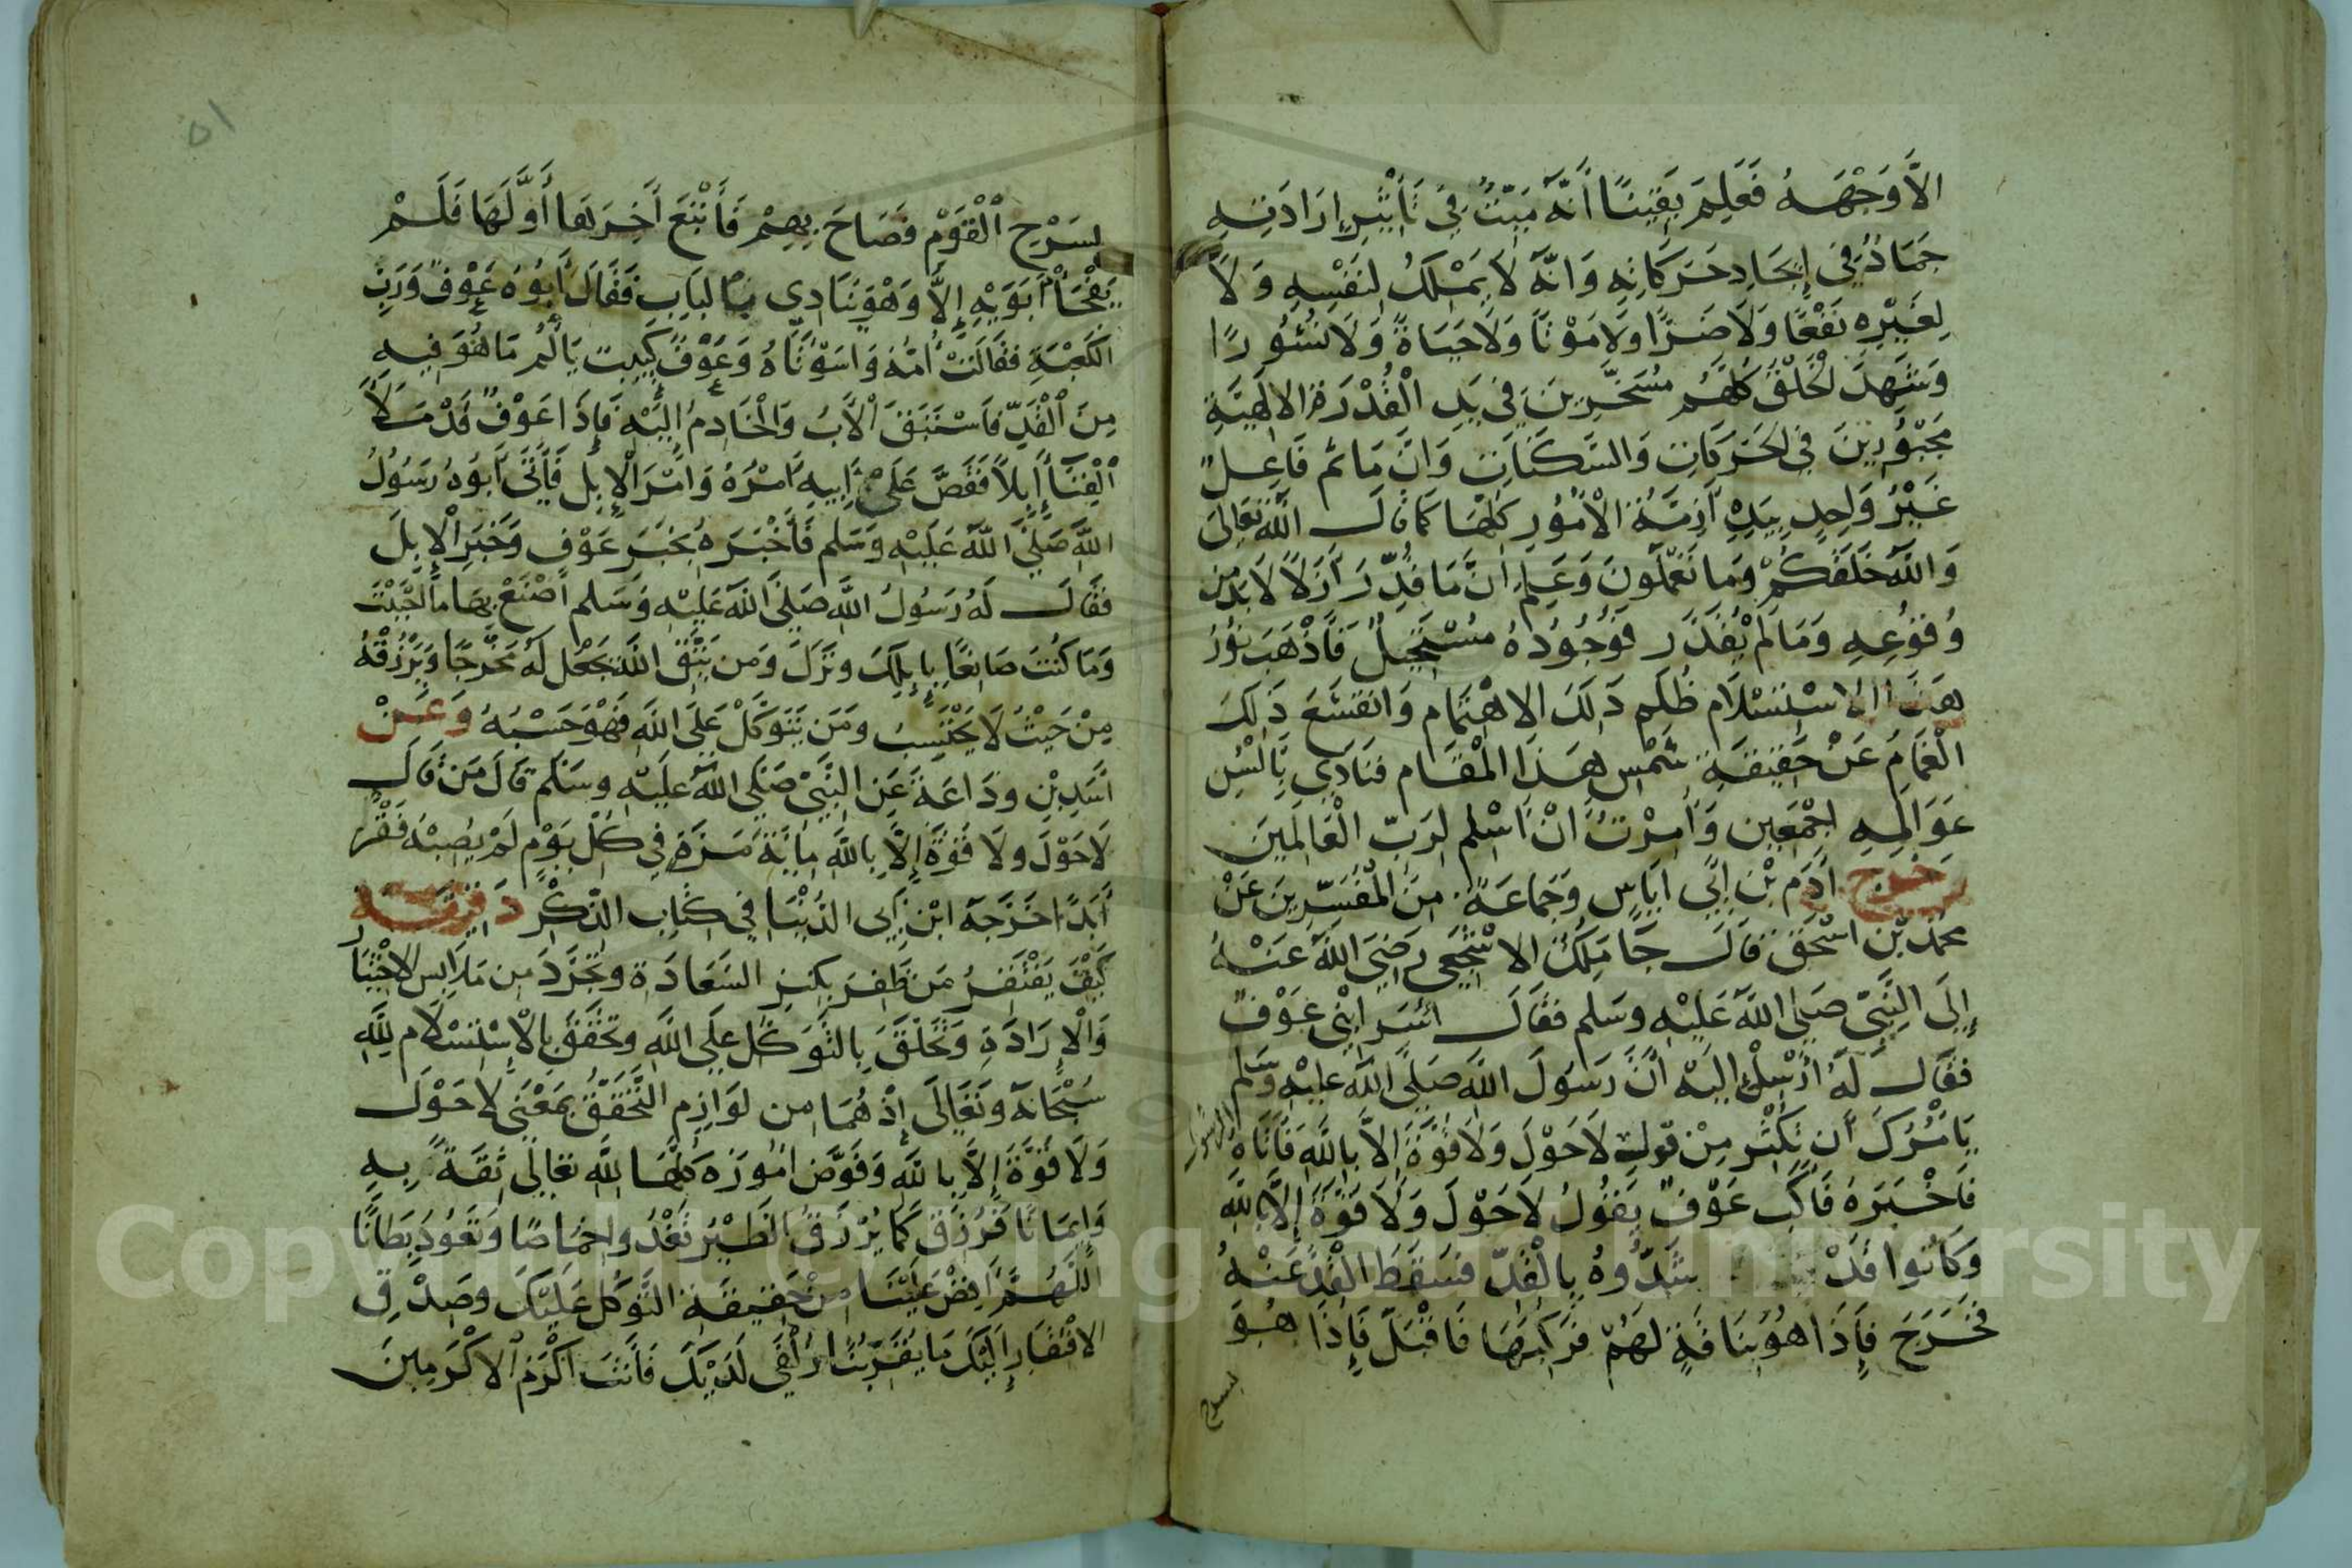 الاَّ وَجْهَهُ فَعَلِمَ يَقِينًا أَنَّهُ مَيِّتٌ فِي تَأْثِيرِ إِرَادَتِهِ
جَمَادٌ فِي إِيجَادِ حَرَكَاتِهِ وَانَّهُ لَا يَمْلِكُ لِنَفْسِهِ وَلَا
لِغَيْرِهِ نَفْعًا وَلَا ضَرًّا وَلَا مَوْتًا وَلَا حَيَاةً وَلَا نُشُورًا
وَشَهِدَ الْخَلْقَ كُلَّهُم مُسَخَّرِينَ فِي يَدِ الْقُدْرَةِ الالَهِيَّةِ
مَجْبُورِينَ فِي الحَرَكَاتِ وَالسَّكَنَاتِ وَانَّ مَا ثَم فَاعِلٌ
غَيْرُ وَاحِدٍ بِيَدِهِ أَزِمَّةُ الْأُمُورِ كُلِّهَا كَمَا قَالَ اللَّهُ تَعَالَى
وَاللَّهُ خَلَقَكُمْ وَمَا تَعْمَلُونَ وَعَلِمَ انَّ مَا قُدِّرَ أَزَلًا لَا بُدَّ مِن
وُقُوعِهِ وَمَا لَمْ يُقَدَّر فَوُجُودُهُ مُسْتَحِيلٌ فَأَذْهَبَ نُورُ
هَذَا الاسْتِسْلَام ظُلَمِ ذَلِكَ الاهْتِمَام وَانقَشَعَ ذَلِكَ
الْغَمَامُ عَنْ حَقِيقَةِ شَمْسِ هَذَا الْمَقَام فَنَادَى بِأَلْسُنِ
عَوَالِمِهِ اجْمَعِين وَأُمِرْتُ انْ اسْلِم لِرَبِّ الْعَالَمِينَ
خَرج ادَم بْن ابِي ايَاسٍ وَجَمَاعَة مِنَ الْمُفَسِّرِينَ عَنْ
محمّد بْن اسْحَق قَالَ جَا مَلِكُ الاشْجَعِي رَضِيَ اللَّهُ عَنْهُ
إِلَى النَّبِيِّ صَلَّى اللَّهُ عَلَيْهِ وَسَلم فقَالَ اُسِرَ ابْنِي عَوْفٌ
فقَالَ لَهُ ارْسِلْ إِلَيْهِ انَّ رَسُولَ اللَّهِ صَلَّى اللَّهُ عَلَيْهِ وَسَلم
يَامُرُكَ أن تُكْثِر مِنْ قول لَا حَوْلَ وَلَا قُوَّةَ إِلَّا بِاللَّهِ فَأَتَاهُ الرسول
فَاخْبَرَهُ فَاكَبَّ عَوْفٌ يَقُولُ لَا حَوْلَ وَلَا قُوَّةَ إِلَّا بِاللَّهِ
وَكَانُوا قَدْ شَدُّوهُ بِالْقِدِّ فَسَقَطَ الْقِدُّ عَنْهُ
فَخَرَجَ فَإِذَا هُوَ بِنَاقَةٍ لَهُمْ فَرَكِبَهَا فَاقْبَلَ فَإِذَا هُوَ
بسرح
٥١
بِسَرْحِ الْقَوْمِ فَصَاحَ بِهِمْ فَأَتْبَعَ آخِرَهَا أَوَّلَهَا فَلَمْ
يَفْجَأْ أَبَوَيْهِ إِلَّا وَهْوَ يُنَادِي بِالبَابِ فَقَالَ أَبُوهُ عَوْفٌ وَرَبِّ
الكَعْبَةِ فَقَالَتْ أُمُّهُ وَاسَوْتَاهُ وَعَوْفٌ كَيِيب يَأْلَمُ مَا هُوَ فِيهِ
مِنَ الْقِدِّ فَاسْتَبَقَ الْأَبُ وَالْخَادِمُ إِلَيْهِ فَإِذَا عَوْفٌ قَدْ مَلَأ
الْفِنَاَ إِبِلًا فَقَصَّ عَلَى أَبِيهِ أَمْرَهُ وَامْرَ الْإِبِل فَأَتَى أَبُوهُ رَسُولُ
اللَّهِ صَلَّى اللَّهُ عَلَيْهِ وَسَلم فَأَخْبَرَهُ بِخَبَرِ عَوْفٍ وَخَبَرِ الْإِبِلِ
فقَالَ لَهُ رَسُولُ اللَّهِ صَلَّى اللَّهُ عَلَيْهِ وَسَلم اصْنَعْ بِهَا مَا احْبَبْتَ
وَمَا كُنْتَ صَانِعًا بِإِبِلِكَ وَنَزَلَ وَمَن يَتَّقِ اللَّه يَجْعَل لَهُ مَخْرَجًا وَيَرْزُقْهُ
مِنْ حَيْثُ لَا يَحْتَسِبُ وَمَن يَتَوَكَّلْ عَلَى اللَّهِ فَهْوَ حَسْبُهُ وَعَنْ
اسَدِ بْنِ وَدَاعَةَ عَنِ النَّبِيِّ صَلَّى اللَّهُ عَلَيْهِ وَسَلم قَالَ مَن قَالَ
لَا حَوْلَ وَلَا قُوَّةَ إِلَّا بِاللَّهِ مِايَةَ مَرَّةٍ فِي كُلِّ يَوْمٍ لَمْ يُصِبْهُ فَقْرٌ
أَبَدًا اخْرَجَهُ ابْن أَبِي الدُّنْيَا فِي كِتَاب الذِّكْر دَقِيقَة
كَيْفَ يَفْتَقِرُ مَن ظَفِرَ بِكَنزِ السَّعَادَةِ وَتَجَرَّدَ مِن مَلَابِسِ الاخْتِيَار
وَالْإِرَادَةِ وَتَخَلَّقَ بِالتَّوَكُّلِ عَلَى اللَّهِ وَتَحَقَّقَ بِالْإِسْتِسْلَام لِلَّهِ
سُبْحَانَهُ وَتَعَالَى إِذْ هُمَا مِن لَوَازِم التَّحَقُّقْ بِمَعْنَى لَا حَوْلَ
وَلَا قُوَّةَ إِلَّا بِاللَّهِ وَفَوَّضَ امُورَهُ كُلَّهَا لِلَّهِ تعَالَى ثِقَةً بِهِ
وَإِيمَانًا فَرُزِقَ كَمَا يُرْزَقُ الطَّيْرُ تَغْدُوا خِمَاصًا وَتَعُودُ بِطَانًا
اللَّهُمَّ أَفِضْ عَلَيْنَا مِنْ حَقِيقَةِ التَّوَكُّلِ عَلَيْكَ وَصِدْقِ
الافْتِقَارِ إِلَيْكَ مَا يُقَرِّبُنَا زُلْفَى لَدَيْكَ فَأَنتَ أَكْرَمُ الاكْرَمِينَ
Copyright © King Saud University